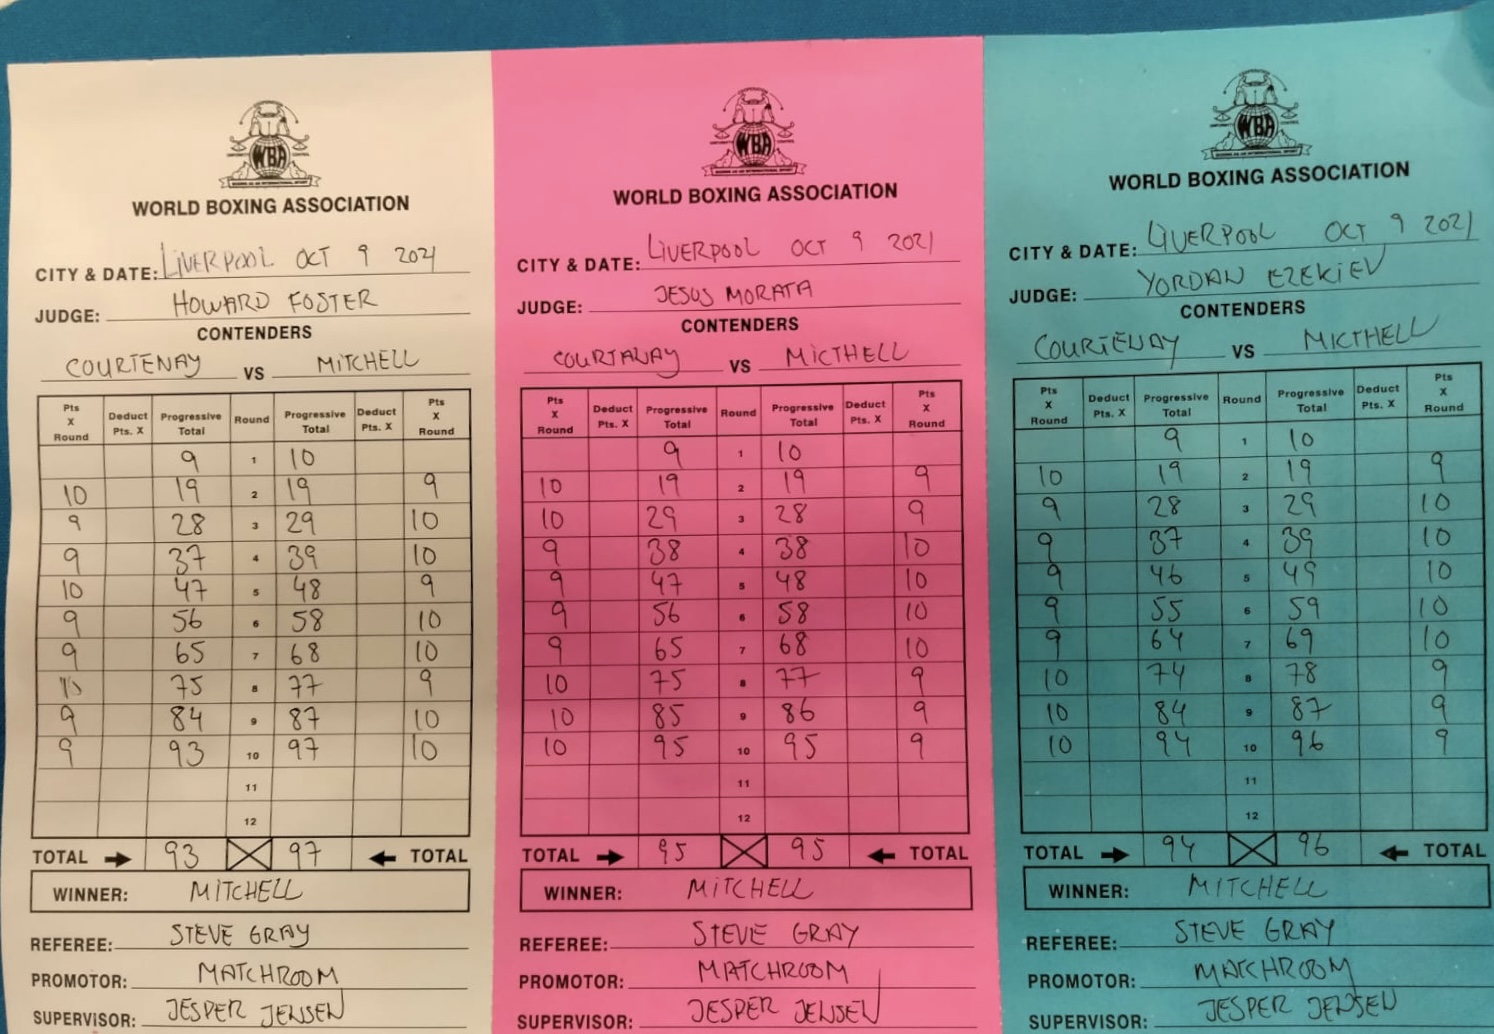 WBA
WORLD BOXING ASSOCIATION
CITY & DATE: LIVERPOOL OCT 9 2021
JUDGE: HOWARD FOSTER
CONTENDERS
COURTENAY VS MITCHELL
Pts X Round Deduct Pts. X Progressive Total Round Progressive Total Deduct Pts. X Pts X Round
9 1 10
10 19 2 19 9
9 28 3 29 10
9 37 4 39 10
10 47 5 48 9
9 56 6 58 10
9 65 7 68 10
10 75 8 77 9
9 84 9 87 10
9 93 10 97 10
11
12
TOTAL 93 97 TOTAL
WINNER: MITCHELL
REFEREE: STEVE GRAY
PROMOTOR: MATCHROOM
SUPERVISOR: JESPER JENSEN
WBA
WORLD BOXING ASSOCIATION
CITY & DATE: LIVERPOOL OCT 9 2021
JUDGE: JESUS MORATA
CONTENDERS
VS MICTHELL
Pts X Round Deduct Pts. X Progressive Total Round Progressive Total Deduct Pts. X Pts X Round
9 1 10
10 19 2 19 9
10 29 3 28 9
9 38 4 38 10
9 47 5 48 10
9 56 6 58 10
9 65 7 68 10
10 75 8 77 9
10 85 9 86 9
10 95 10 95 9
11
12
TOTAL 95 95 TOTAL
WINNER: MITCHELL
REFEREE: STEVE GRAY
PROMOTOR: MATCHROOM
SUPERVISOR: JESPER JENSEN
WBA
WORLD BOXING ASSOCIATION
CITY & DATE: LIVERPOOL OCT 9 2021
JUDGE: YORDAN EZEKIEV
CONTENDERS
COURTENAY VS MICTHELL
Pts X Round Deduct Pts. X Progressive Total Round Progressive Total Deduct Pts. X Pts X Round
9 1 10
10 19 2 19 9
9 28 3 29 10
9 37 4 39 10
9 46 5 49 10
9 55 6 59 10
9 64 7 69 10
10 74 8 78 9
10 84 9 87 9
10 94 10 96 9
11
12
TOTAL 94 96 TOTAL
WINNER: MITCHELL
REFEREE: STEVE GRAY
PROMOTOR: MATCHROOM
SUPERVISOR: JESPER JENSEN